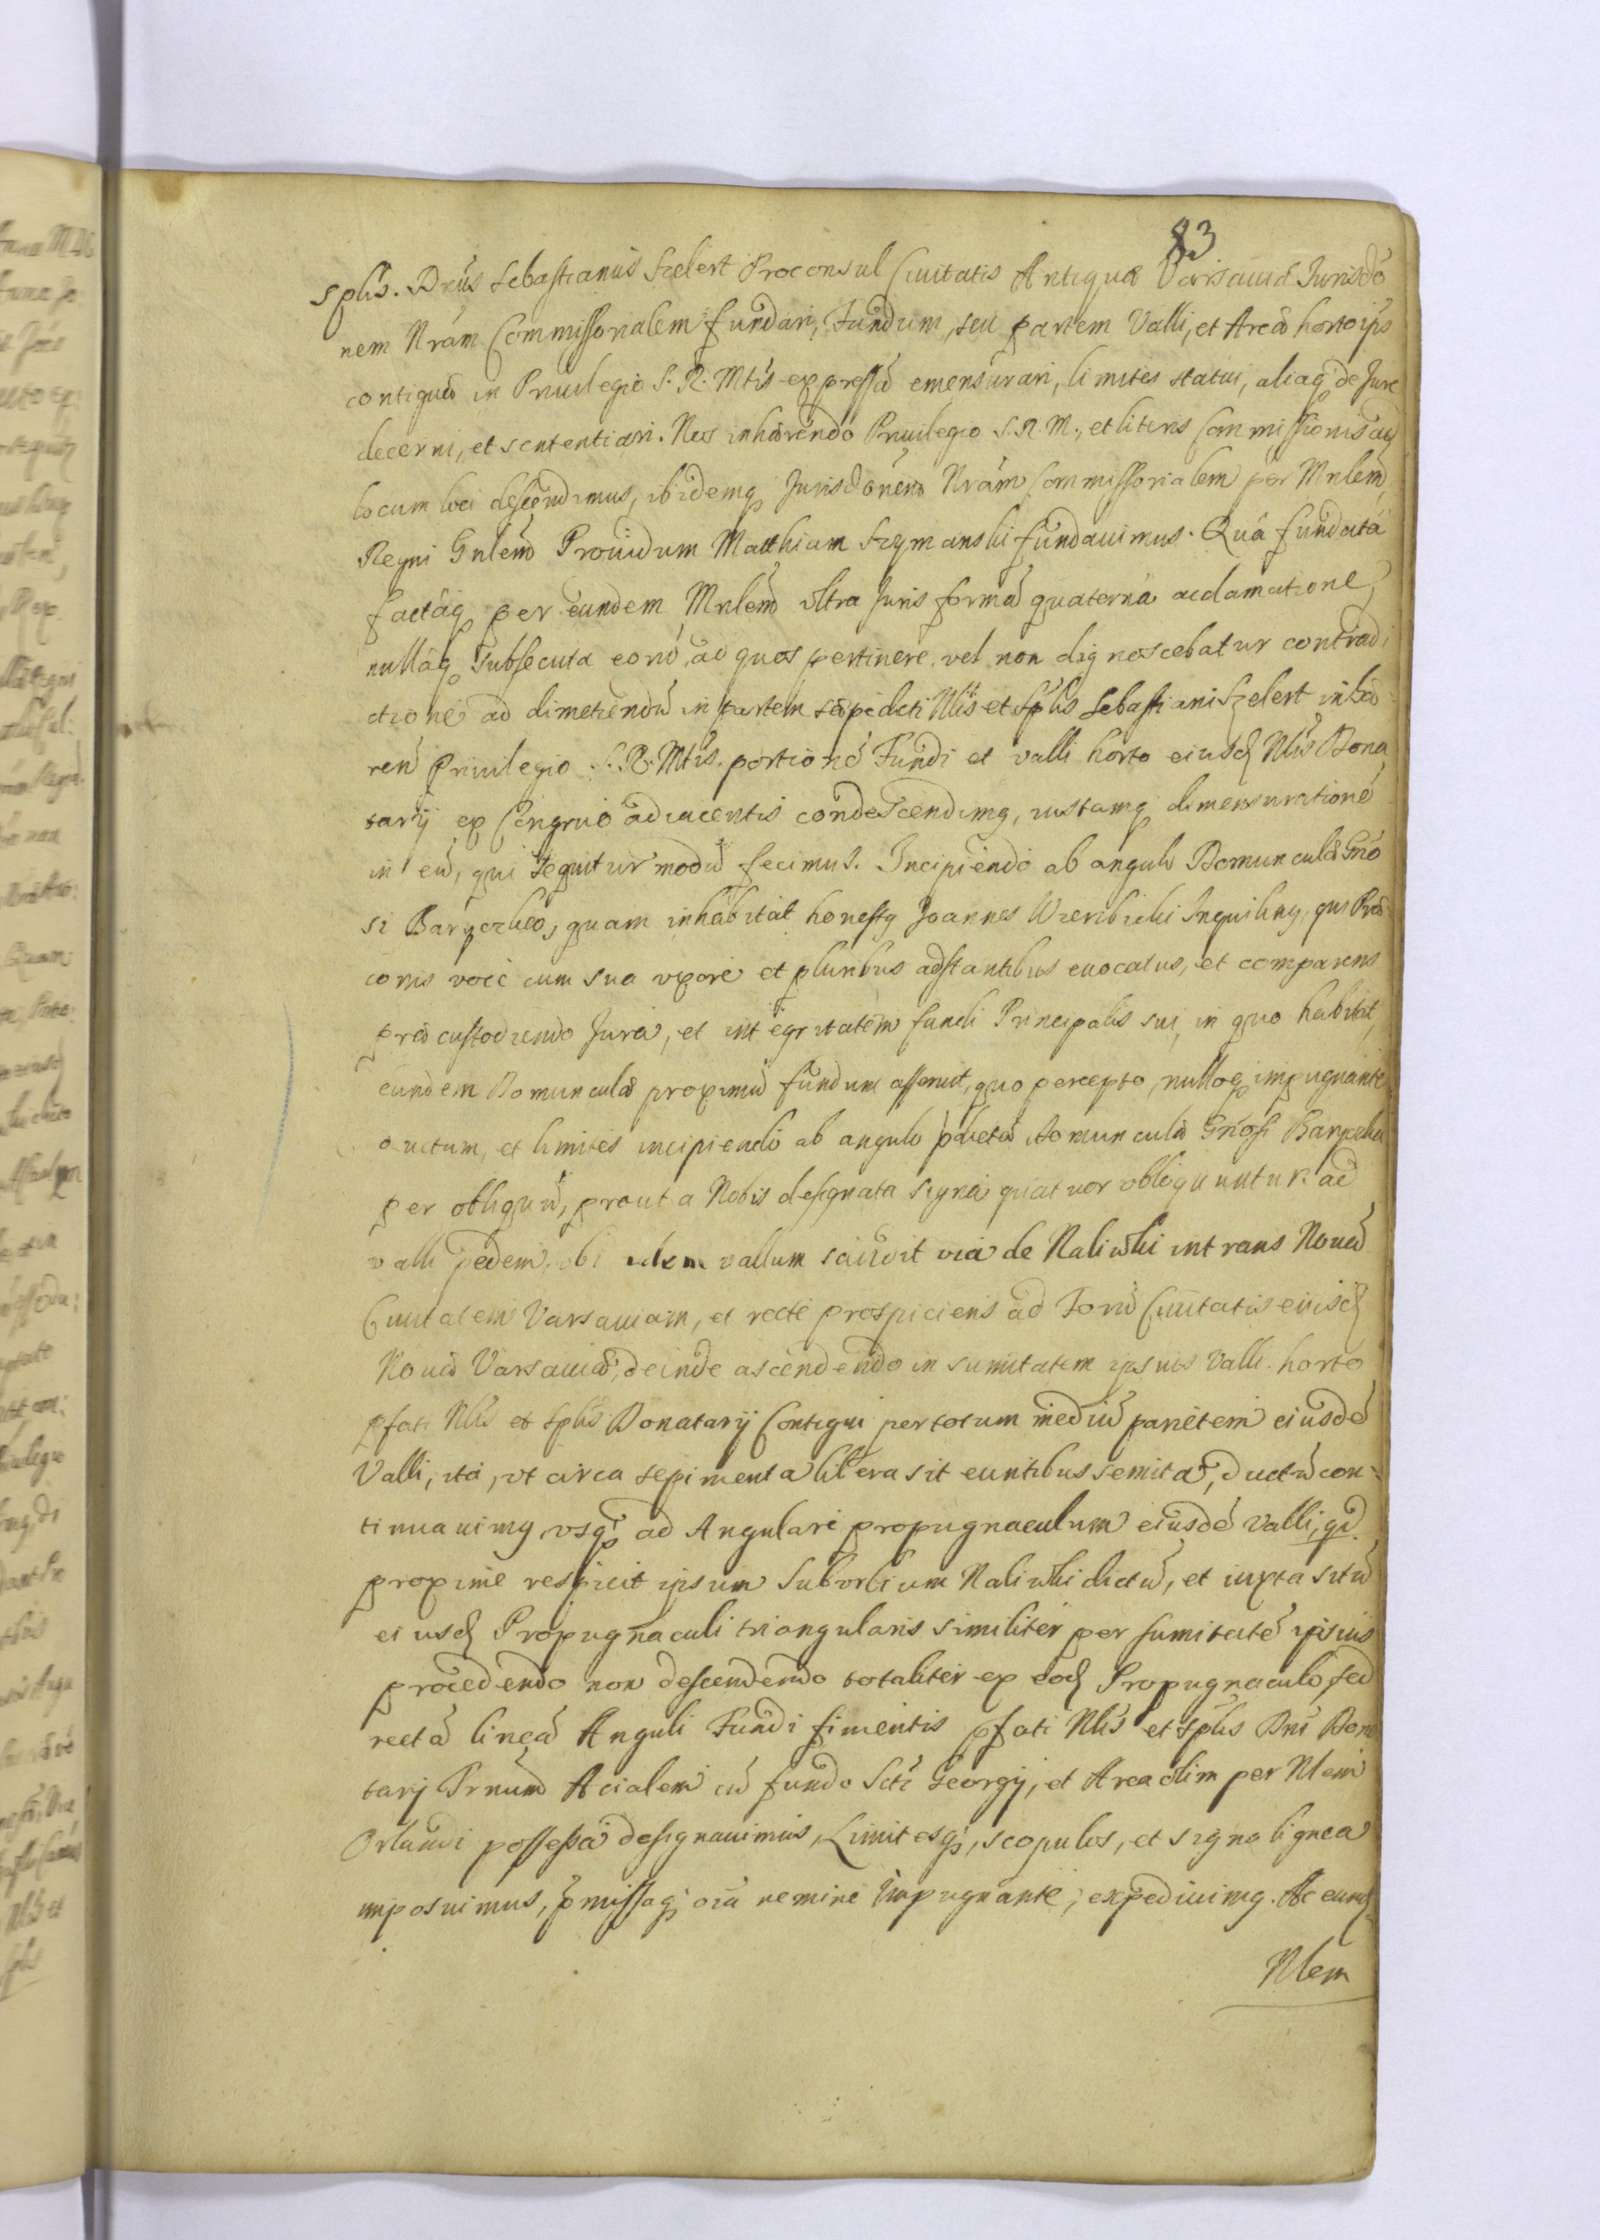 83
splis. Dnus Sebastianus Szelert Proconsul Ciuitatis Antiquæ Varsauiæ Jurisdo
nem Nram Commissorialem fundari, Fundum, seu partem Valli, et Areæ horto ips
contiguæ in Priuilegio S. R. Mtis expressæ emensurari, limites statui, aliaq de Jure
decerni, et sententiari. Nos inhærendo Priuilegio S. R. M., et literis Commissionis ad
locum loci descendimus, ibidemq Jurisdonem Nram Commissorialem per Mnlem
Regni Gnlem Prouidum Matthiam Szymanski fundauimus. Quâ fundatâ
factaq per eundem Mnlem vltra Juris formã quaternâ acclamatione,
nullaq subsecuta eorũ, ad quos pertinere vel non dignoscebatur contradi
ctione ad dimetiendũ in partem sæpedicti Nlis et Splis Sebastiani Szelert inhæ
ren Priuilegio S. R. Mtis. portionẽ Fundi et valli horto eiusd Nlis Dona
tarij ex Congruo adiacentis condescendimq, iustamq dimensurationẽ
in eũ, qui sequitur modũ fecimus. Incipiendo ab angulo Domunculæ Gno
si Baryczka, quam inhabitat honestq Joannes Wierzbicki Inquilinq, qui Præ
conis voce cum sua vxore et pluribus adstantibus euocatus, et comparens
præcustodiendo Jura, et integritatem fundi Principalis sui, in quo habitat,
eundem Domunculæ proximũ fundum asseruit, quo percepto, nulloq impugnante
ductum, et limites incipiendo ab angulo pdictæ Domunculæ Gnosi Baryczka
per obliquũ, prout a Nobis designata signa quatuor obliquuntur ad
valli pedem, vbi idem vallum scindit via de Naliwki intrans Nouã
Ciuitatem Varsauiam, et recte prospiciens ad Forũ Ciuitatis eiusd
Nouæ Varsauiæ, deinde ascendendo in sumitatem ipsius Valli horto
pfati Nlis et Splis Donatarij Contigui per totum mediũ parietem eiusdẽ
Valli, ita, vt circa sepimenta libera sit euntibus semita, ductũ con-
tinuauimq vsq ad Angulare propugnaculum eiusdẽ Valli, qd
proxime respicit ipsum Suburbium Naliwki dictũ, et iuxta sitũ
eiusd Propugnaculi triangularis similiter per sumitatẽ ipsius
procedendo non descendendo totaliter ex eod Propugnaculo, sed
rectã lineã Anguli Fundi fimentis pfati Nlis et Splis Dni Dona
tarij Acialem cũ fundo Scti Georgij, et Area olim per Nlem
Orlandi possessa designauimus, Limitesq, scopulos, et signa lignea
imposuimus, pmissaq oia nemine impugnante, expediuimq. Ac eund
Nlem